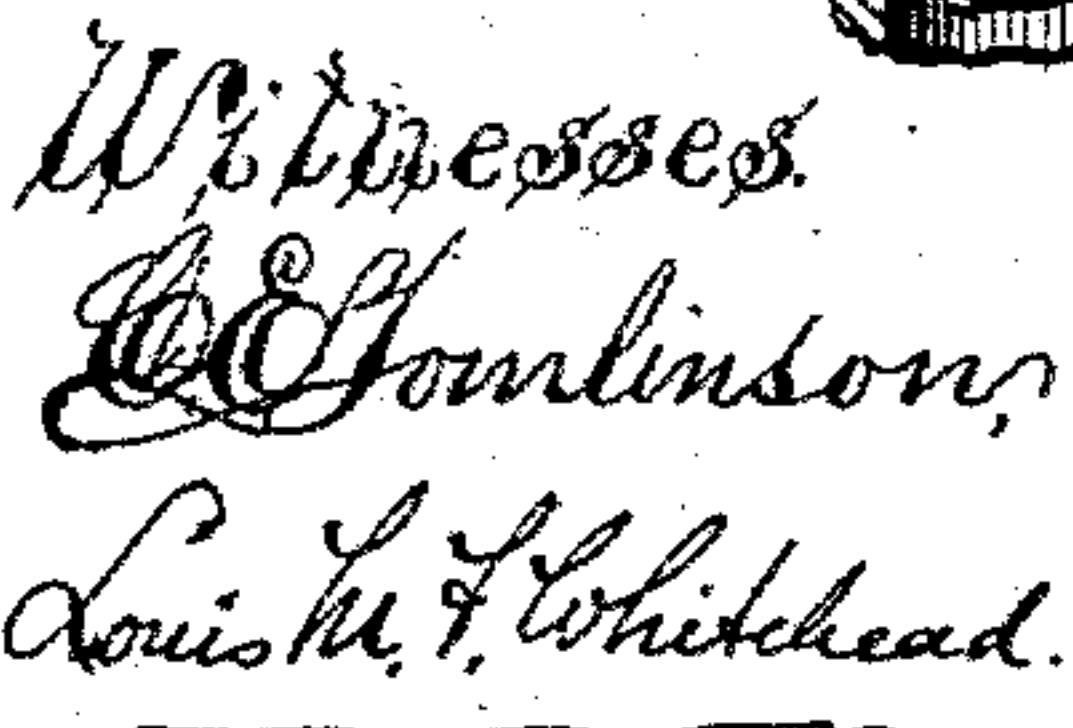 Witnesses.
C E Tomlinson,
Louis M. F. Whitehead.